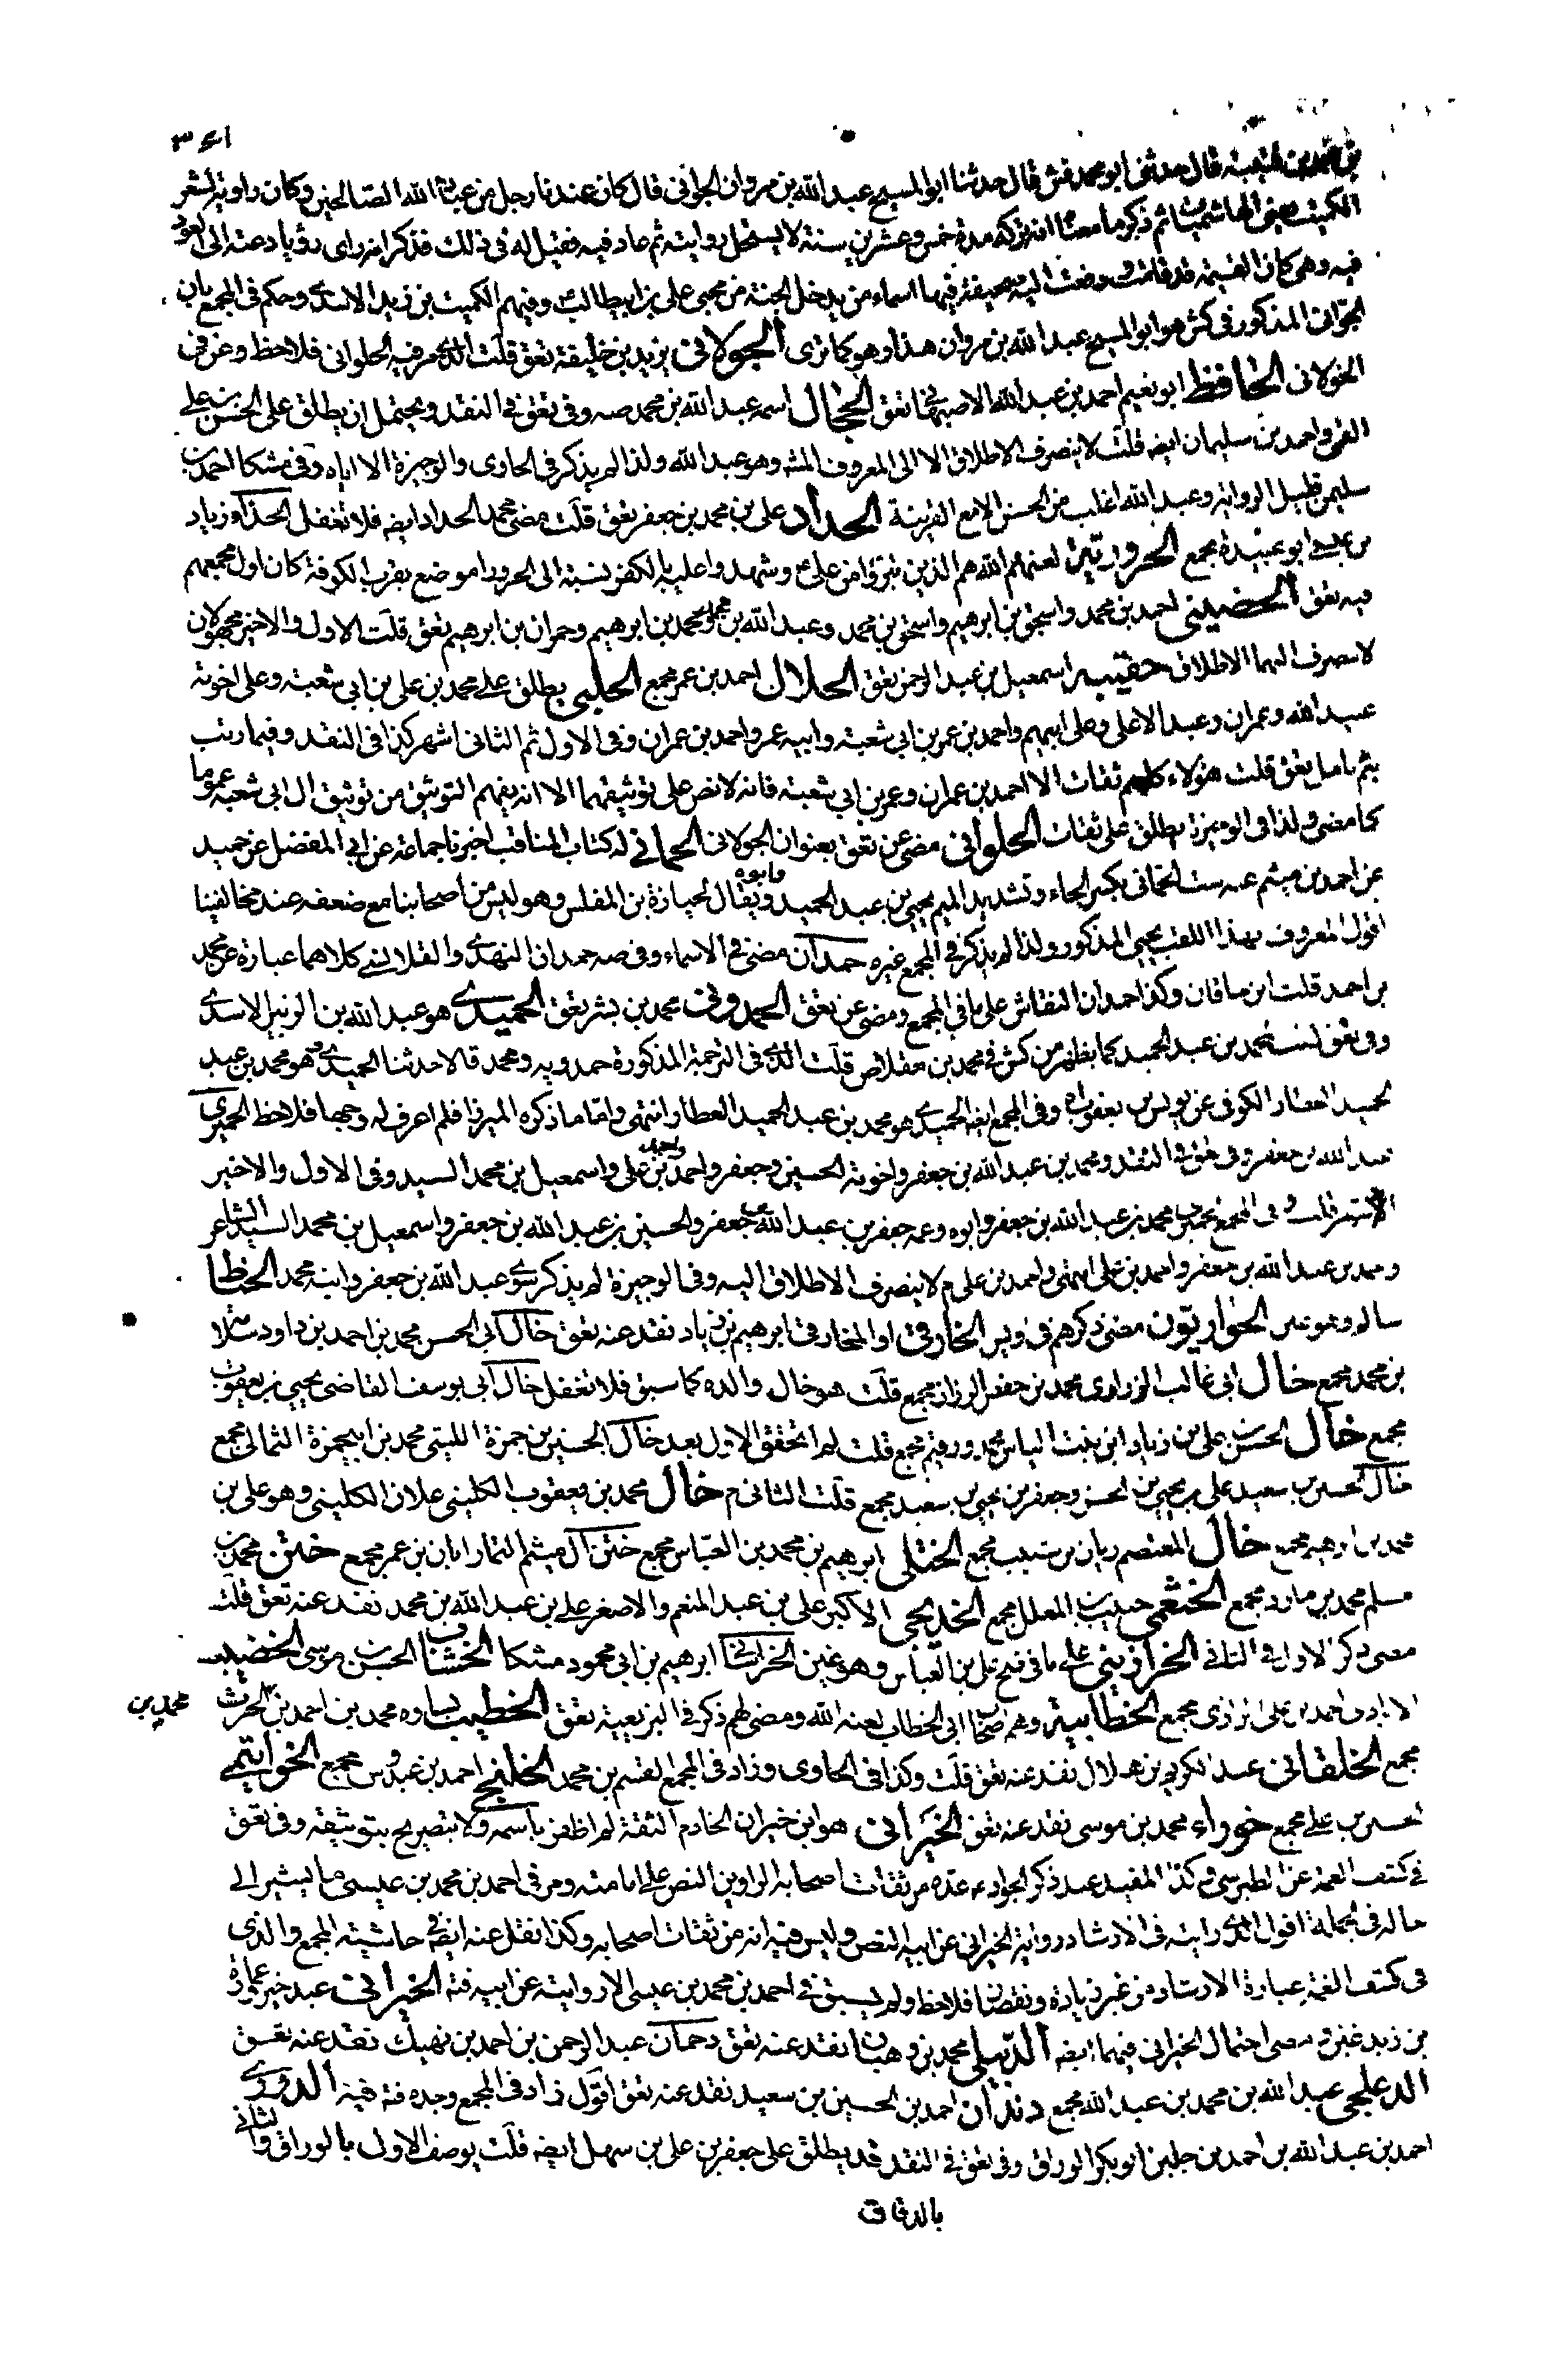 قال حدثنى ابو محمد فش قال حدثنا ابو المسيح عبد الله بن مروان الجوانى قال كان عندنا رجل من عباد الله الصالحين وكان راوية لشعر
الكميت يعنى الهاشميات ثم ذكر ما معناه انه تركه مدة خمس وعشرين سنة لا يستحل روايته ثم عاد فيه فقيل له فى ذلك فذكر انه راى رؤيا دعته الى العود
فيه وهى كان القيمة قد قامت ودفعت اليه صحيفة فيها اسماء من يدخل الجنة من محبى على بن ابيطالب وفيهم الكميت بن زيد الاسدى وحكم فى المجمع بان
الجوانى المذكور فى كش هو ابو المسيح عبد الله بن مروان هذا وهو كما ترى الجولانى يزيد بن خليفة تعق قلت الذى مر فيه الحلوانى فلاحظ وعن فى
الخولانى الحافظ ابو نعيم احمد بن عبد الله الاصبهانى تعق الحجال اسمه عبد الله بن محمد صه وفى تعق فى النقد ويحتمل ان يطلق على الحسن بن على
القمى واحمد بن سليمان ايضه قلت لا ينصرف الاطلاق الا الى المعروف المشه وهو عبد الله ولذا لم يذكر فى الحاوى والوجيزة الا اياه وفى مشكا احمد بن
سليمن قليل الرواية وعبد الله اغلب من الحسن الا مع القرينة الحداد على بن محمد بن جعفر تعق قلت مضى محمد الحداد ايضه فلا تغفل الحذاء وزياد
بن عيسى ابو عبيدة مجمع الحرورية لعنهم الله هم الذين تبرؤا من على ع وشهدوا عليه بالكفر نسبة الى الحرورا موضع بقرب الكوفة كان اول مجمعهم
فيه تعق الحضينى احمد بن محمد واسحق بن ابرهيم واسحق بن محمد وعبد الله بن محمد ومحمد بن ابرهيم وحمران بن ابرهيم تعق قلت الاول والاخير مجهولان
لا ينصرف اليهما الاطلاق حقيبه اسمعيل بن عبد الرحمن تعق الحلال احمد بن عمر مجمع الحلبى يطلق على محمد بن على بن ابى شعبة وعلى اخوته
عبيد الله وعمران وعبد الاعلى وعلى ابيهم واحمد بن عمر بن ابى شعبة وابيه عمر واحمد بن عمران وفى الاول ثم الثانى اشهر كذا فى النقد وفيما رتب
بثم تامل تعق قلت هؤلاء كلهم ثقات الا احمد بن عمران وعمر بن ابى شعبة فانه لا نص على توثيقهما الا انه يفهم التوثيق من توثيق ال ابى شعبة عموما
كما مضى ولذا فى الوجيزة يطلق على ثقات الحلوانى مضى عن تعق بعنوان الجولانى الحمانى له كتاب المناقب اخبرنا جماعة عن ابى المفضل عن حميد
عن احمد بن ميثم عنه ست الحمانى بكسر الحاء وتشديد الميم يحيى بن عبد الحميد وابوه ويقال لجبارة بن المفلس وهو ليس من اصحابنا مع ضعفه عند مخالفينا
اقول المعروف بهذا اللقب يحيى المذكور ولذا لم يذكر فى المجمع غيره حمدان مضى فى الاسماء وفى صه حمدان النهدى والقلانسى كلاهما عبارة عن محمد
بن احمد قلت ابن خاقان وكذا حمدان النقاش على ما فى المجمع ومضى عن تعق الحمدونى محمد بن بشر تعق الحميدى هو عبد الله بن الزبير الاسدى
وفى تعق محمد بن عبد الحميد كما يظهر من كش فى محمد بن مقلاص قلت الذى فى الترجمة المذكورة حمدويه ومحمد قالا حدثنا الحميدى وهو محمد بن عبد
الحميد العطار الكوفى عن يونس بن يعقوب وفى المجمع ايضه الحميدى هو محمد بن عبد الحميد العطار انتهى واما ما ذكره الميرزا فلم اعرف له وجها فلاحظ الحميرى
عبد الله بن جعفر وفى تعق فى النقد ومحمد بن عبد الله بن جعفر واخوته الحسين وجعفر واحمد واحمد بن على واسمعيل بن محمد السيد وفى الاول والاخير
الاشهر قلت وفى المجمع محمد بن عبد الله بن جعفر وابوه وعمه جعفر بن عبد الله بن جعفر والحسين بن عبد الله بن جعفر واسمعيل بن محمد السيد الشاعر
ومحمد بن عبد الله بن جعفر واحمد بن على انتهى واحمد بن على م لا ينصرف الاطلاق اليه وفى الوجيزة لم يذكر سوى عبد الله بن جعفر وابنه محمد الحناط
سالم وهو الحواريون مضى ذكرهم فى اويس الخارفى او المخارفى ابرهيم بن زياد نقد عنه تعق خال ابى الحسن محمد بن احمد بن داود سلامة
بن محمد مجمع خال ابى غالب الزرارى محمد بن جعفر الرزاز مجمع قلت هو خال والده كما سبق فلا تغفل خال ابى يوسف القاضى يحيى بن يعقوب
مجمع خال الحسن بن على بن زياد ابن بنت الياس محمد ورقيم مجمع قلت لم اتحقق الاول بعد خال الحسين بن حمزة الليثى محمد بن ابيحمزة الثمالى مجمع
خال الحسين بن سعيد على بن يحيى بن الحسن وجعفر بن يحيى بن سعيد مجمع قلت الثانى م خال محمد بن يعقوب الكلينى علان الكلينى وهو على بن
محمد بن ابرهيم مجمع خال المعتصم ريان بن شبيب مجمع الختلى ابرهيم بن محمد بن العباس مجمع ختن ال ميثم التمار ابان بن عمر مجمع ختن محمد بن
مسلم محمد بن مارد مجمع الخثعمى حبيب بن المعلل مجمع الخديجى الاكبر على بن عبد المنعم والاصغر على بن عبد الله بن محمد نقد عنه تعق قلت
مضى ذكر الاول فى الثانى الخرازينى على ما فى نسخ على بن العباس وهو غير الخراسانى ابرهيم بن ابى محمود مشكا الخشاب الحسن بن موسى الخضيب
الايادى احمد بن على الرازى مجمع الخطابية وهم اصحاب ابى الخطاب لعنه الله ومضى لهم ذكر فى البزيعية تعق الخطيب بساوه محمد بن احمد بن محمد بن الحرث
مجمع الخلقانى عبد الكريم بن هلال نقد عنه تعق قلت وكذا فى الحاوى وزاد فى المجمع القسم بن محمد الخلنجى احمد بن عبدوس مجمع الخواتيمى
الحسن بن على مجمع خوراء محمد بن موسى نقد عنه تعق الخيرانى هو ابن خيران الخادم الثقة لم اظفر باسمه ولا بتصريح بتوثيقه وفى تعق
فى كشف الغمة عن الطبرسى وكذا المفيد عند ذكر الجواد ع عده من ثقات اصحابه الراوين النص على امامته ومر فى احمد بن محمد بن عيسى ما يشير الى
حاله فى الجملة اقول الذى رايته فى الارشاد رواية الخيرانى عن ابيه النص وليس فيه انه من ثقات اصحابه وكذا نقل عنه ايضه فى حاشية المجمع والذى
فى كشف الغمة عبارة الارشاد من غير زيادة ونقصان فلاحظ ولم يسبق فى احمد بن محمد بن عيسى الا روايته عن ابيه فته الخيرانى عبد خير عمارة
بن زيد غض ومضى احتمال الخيرانى فيهما ايضه الدبيلى محمد بن وهبان نقد عنه تعق دحمان عبد الرحمن بن احمد بن نهيك نقد عنه تعق
الدعلجى عبد الله بن محمد بن عبد الله مجمع دندان احمد بن الحسين بن سعيد نقد عنه تعق اقول زاد فى المجمع وجده فته فيه الدورى
احمد بن عبد الله بن احمد بن جلين ابو بكر الوراق وفى تعق فى النقد قد يطلق على جعفر بن على بن سهل ايضه قلت يوصف الاول بالوراق والثانى
بالدقاق